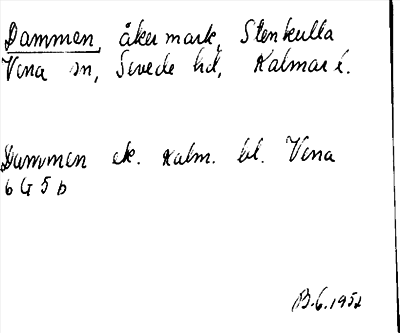 Dammen, åkermark, Stenkulla
Vena sn, Sevede hd, Kalmar l.
Dammen ek. Kalm. bl. Vena
6 G 5 b
B.G. 1952